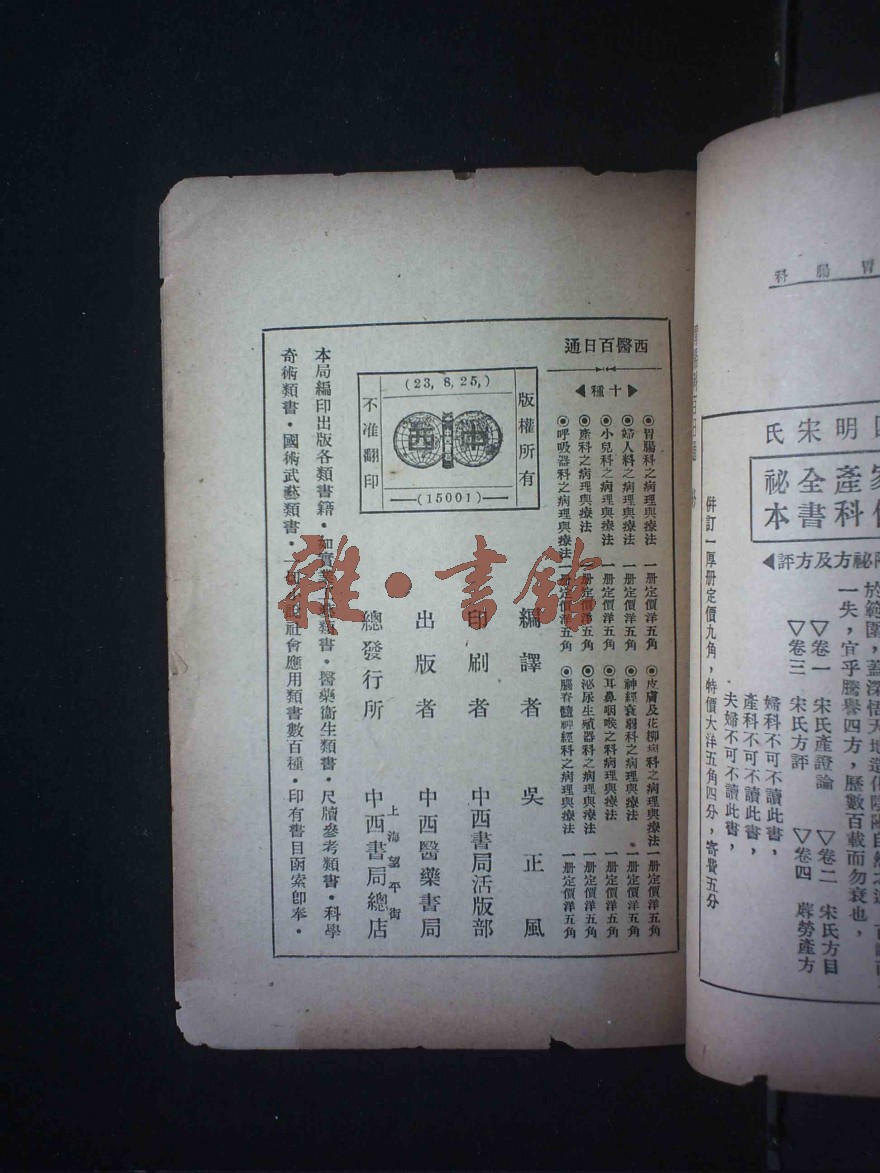 科 腸 胃
四明宋氏
產科全書祕本
祕方及方評◀
併訂一厚册定價九角，特價大洋五角四分，寄費五分
一失，宜乎騰譽四方，歷數百載而勿衰也，
▽卷一 宋氏產證論 ▽卷二 宋氏方目
▽卷三 宋氏方評 ▽卷四 蓐勞產方
婦科不可不讀此書，
產科不可不讀此書，
夫婦不可不讀此書，
西醫百日通
▶十種◀
◉胃腸科之病理與療法 一册定價洋五角
◉婦人科之病理與療法 一册定價洋五角
◉小兒科之病理與療法 一册定價洋五角
◉產科之病理與療法 一册定價洋五角
◉呼吸器科之病理與療法 一册定價洋五角
◉皮膚及花柳病科之病理與療法 一册定價洋五角
◉神經衰弱科之病理與療法 一册定價洋五角
◉耳鼻咽喉之科病理與療法 一册定價洋五角
◉泌尿生殖器科之病理與療法 一册定價洋五角
◉腦脊髓神經科之病理與療法 一册定價洋五角
版權所有
(23, 8, 25,)
中西
(15001)
不准翻印
編譯者 吳正風
印刷者 中西書局活版部
出版者 中西醫藥書局
總發行所 上海望平街 中西書局總店
本局編印出版各類書籍・如實業工藝類書・醫藥衛生類書・尺牘參考類書・科學
奇術類書・國術武藝類書・一切小說社會應用類書數百種・印有書目函索卽奉・
雜・書館